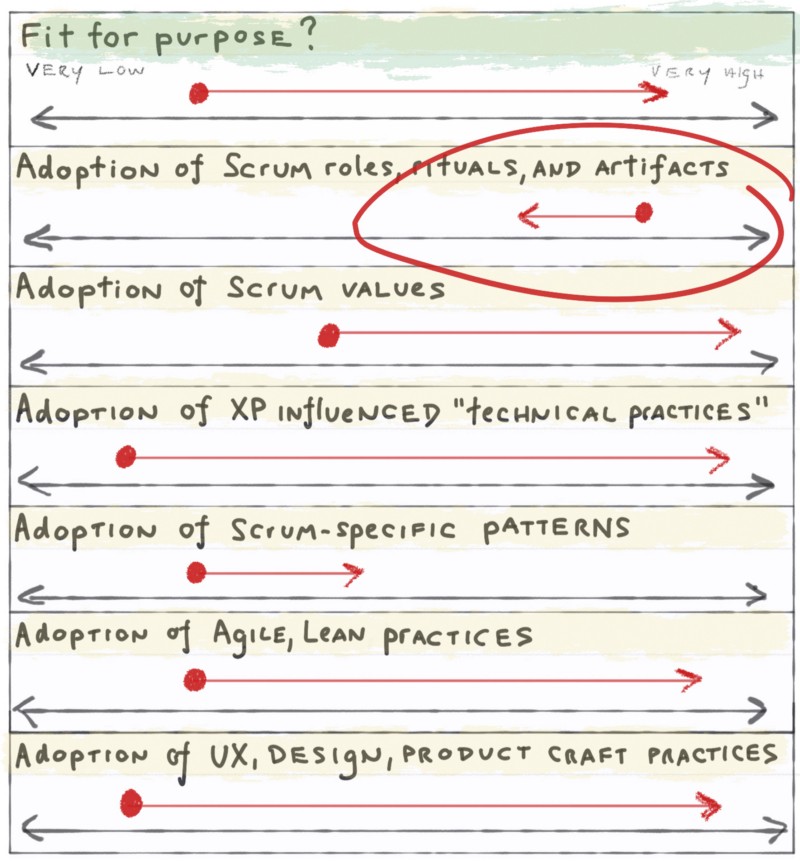 Fit for purpose?
VERY LOW
VERY HIgh
Adoption of Scrum roles, rituals, AND Artifacts
Adoption of Scrum values
Adoption of XP influenced "technical practices"
Adoption of Scrum-specific patterns
Adoption of Agile, Lean practices
Adoption of UX, Design, product craft practices